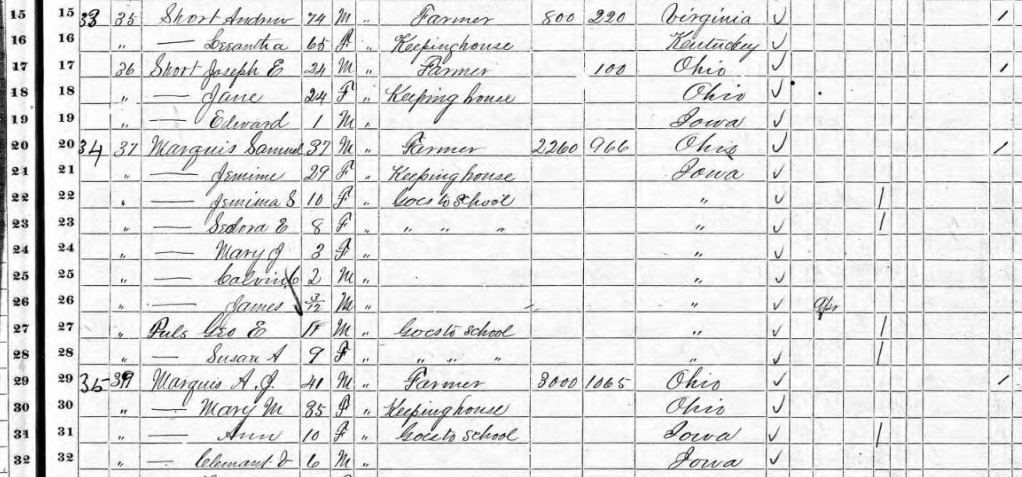 15 15 33 35 Short Andrew 74 M " Farmer 800 220 Virginia ✓ 1
16 16 " — 65 F " Keeping house Kentucky ✓
17 17 36 Short Joseph E 24 M " Farmer 100 Ohio ✓ 1
18 18 " — Jane 24 F " Keeping house Ohio ✓
19 19 " — Edward 1 M " Iowa ✓
20 20 34 37 Marquis Samuel 37 M " Farmer 2260 966 Ohio ✓ 1
21 21 " — Jemime 29 F " Keeping house Iowa ✓
22 22 " — Jemima S 10 F " Goes to school " ✓ 1
23 23 " — E 8 F " " " " " ✓ 1
24 24 " — Mary J 3 F " " ✓
25 25 " — Calvin 2 M " " ✓
26 26 " — James 3/12 M " " ✓ Apr
27 27 " Puls Geo E M " Goes to school " ✓ 1
28 28 " — Susan A 9 F " " " " " ✓ 1
29 29 35 Marquis A. J. 41 M " Farmer 3000 1065 Ohio ✓ 1
30 30 " — Mary M 35 F " Keeping house Ohio ✓
31 31 " — Ann 10 F " Goes to school Iowa ✓ 1
32 32 " — Clemant V 6 M " Iowa ✓